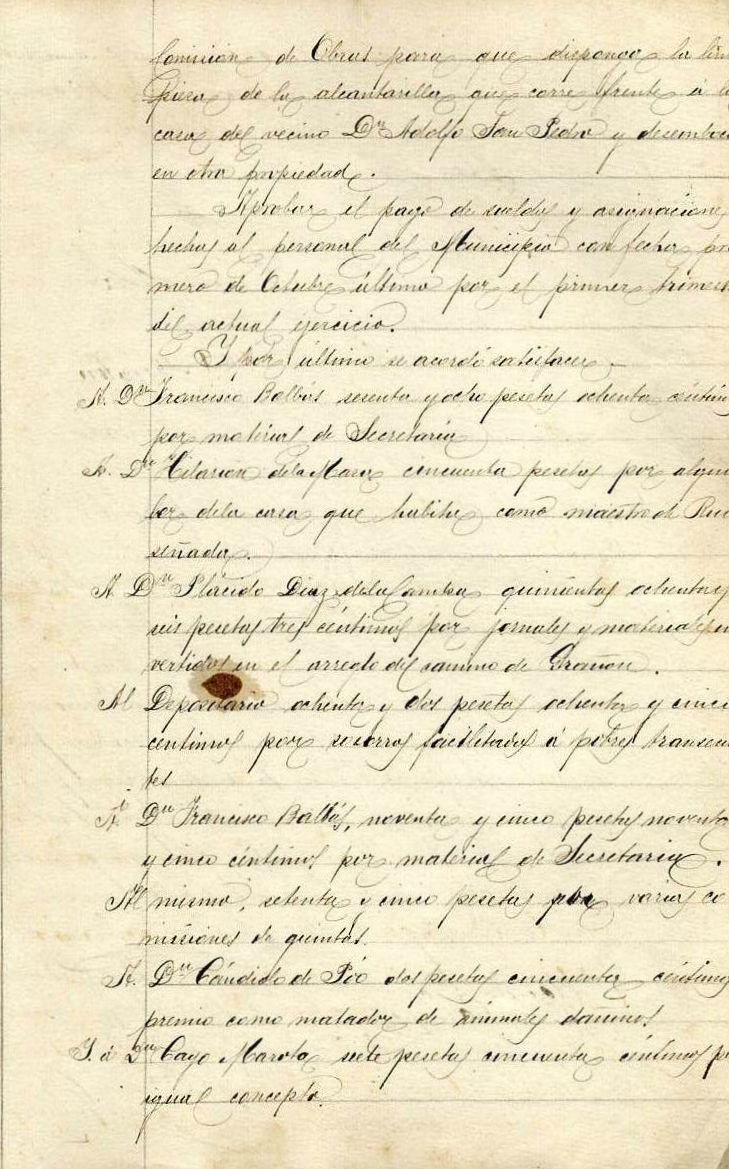 Comision de Obras para que disponga la lim
pieza de la alcantarilla que corre frente á la
casa del vecino Dn Adolfo San Pedro y desemboca
en otra propiedad.
Aprobar el pago de sueldos y asignaciones
hechas al personal del Municipio con fecha pri
mero de Octubre último por el primer trimest
del actual ejercicio.
Y por último se acordó satisfacer.
A. Dn Francisco Balbás sesenta y ocho pesetas ochenta céntim
por material de Secretaria
A. Dn Hilarion de la Maza cincuenta pesetas por alqui
ler de la casa que habita como maestro de Rui
señada.
A Dn Plácido Diaz de la Campa quinientas ochenta y
seis pesetas tres céntimos por jornales y materiales in
vertidos en el arreglo del camino de Trañon.
Al Depositario ochenta y dos pesetas ochenta y cinco
centimos por socorros facilitados á pobres transeun
tes
A Dn Francisco Balbás, noventa y cinco pesetas noventa
y cinco céntimos por material de Secretaria.
Al mismo, setenta y cinco pesetas por varias co
misiones de quintas.
A. Dn Cándido de Póo dos pesetas cincuenta céntimos
premio como matador de animales dañinos
Y. á Dn Cayo Marota siete pesetas cincuenta céntimos p
igual concepto.